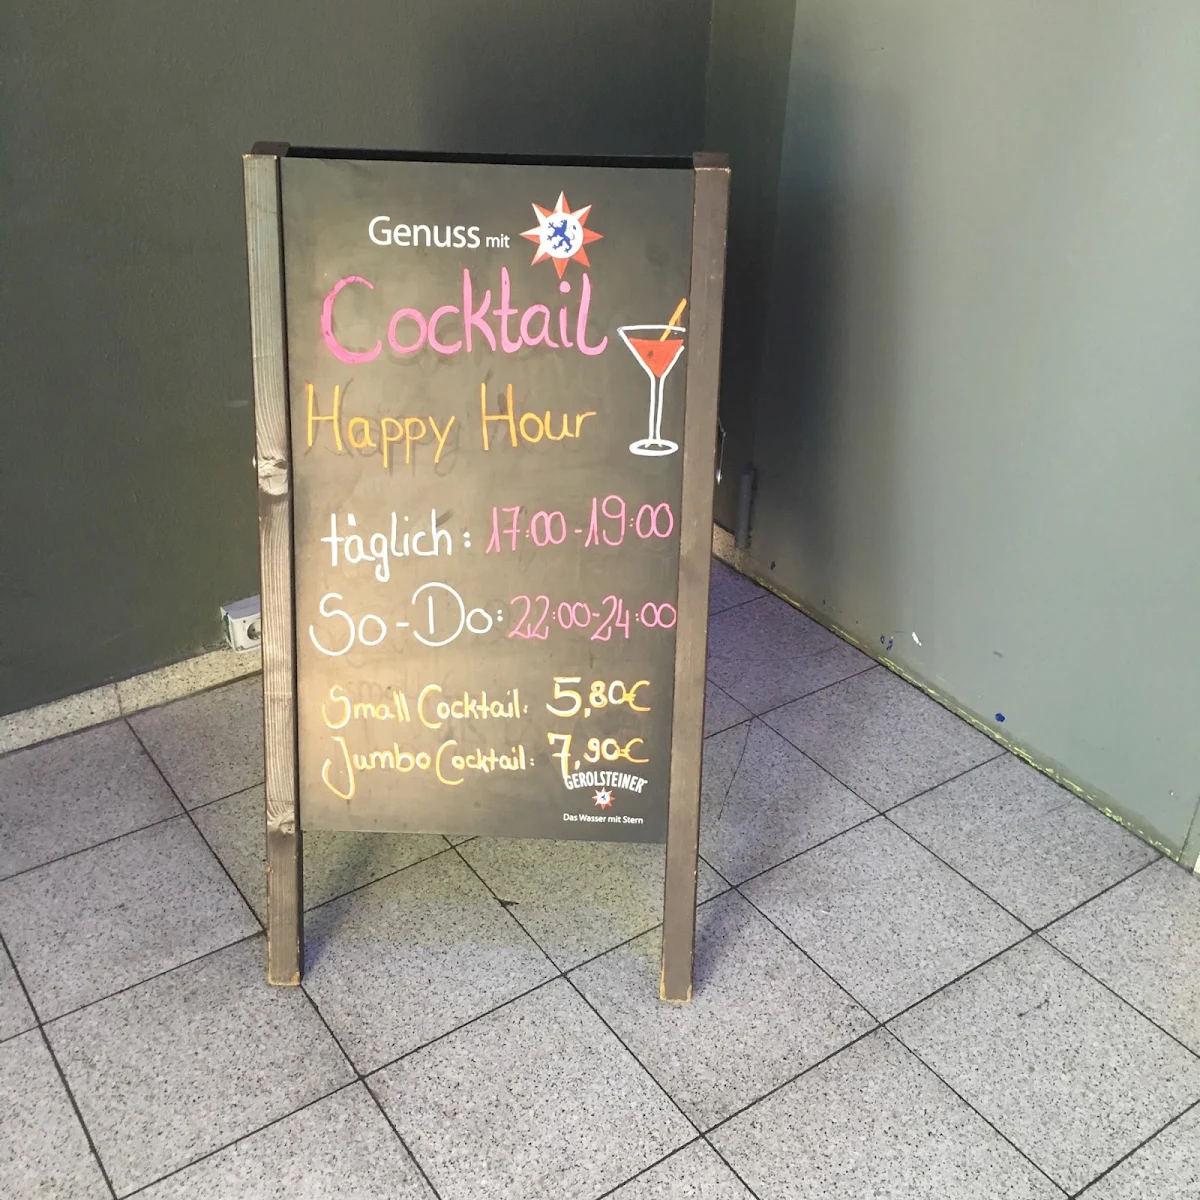 Genuss mit
Cocktail
Happy Hour
täglich: 17:00-19:00
So-Do: 22:00-24:00
Small Cocktail: 5,80€
Jumbo Cocktail: 7,90€
GEROLSTEINER
Das Wasser mit Stern